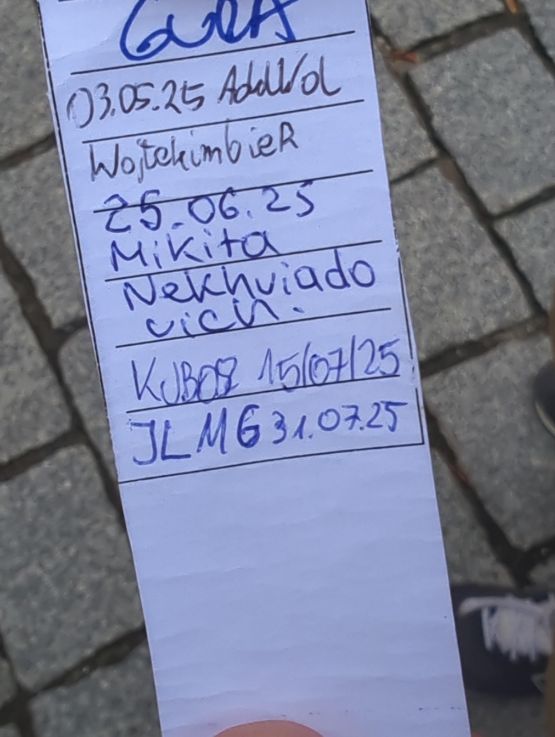 GURA
03.05.25 AddWol
WojtekimbieR
25.06.25
Mikita
Nekhviado
vich.
KUBO8 15/07/25
JLMG 31.07.25